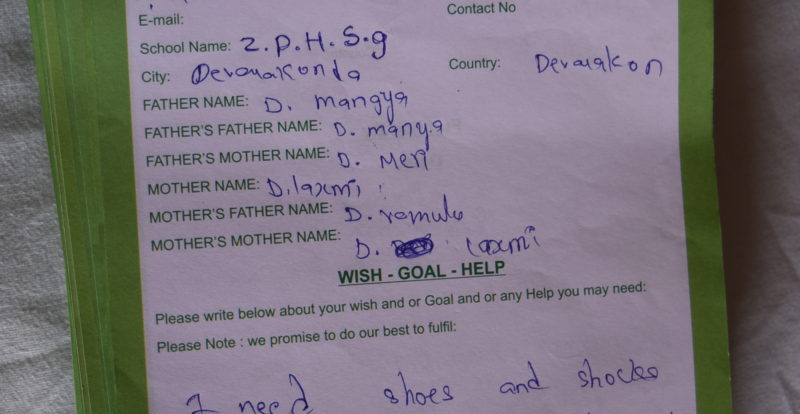 E-mail:
Contact No
School Name: Z.P.H.S.g
City: Devarakonda
Country: Devarakon
FATHER NAME: D. mangya
FATHER'S FATHER NAME: D. manya
FATHER'S MOTHER NAME: D. Meri
MOTHER NAME: D. laxmi
MOTHER'S FATHER NAME: D. ramulu
MOTHER'S MOTHER NAME: D. laxmi
WISH - GOAL - HELP
Please write below about your wish and or Goal and or any Help you may need:
Please Note : we promise to do our best to fulfil:
I need shoes and shocks